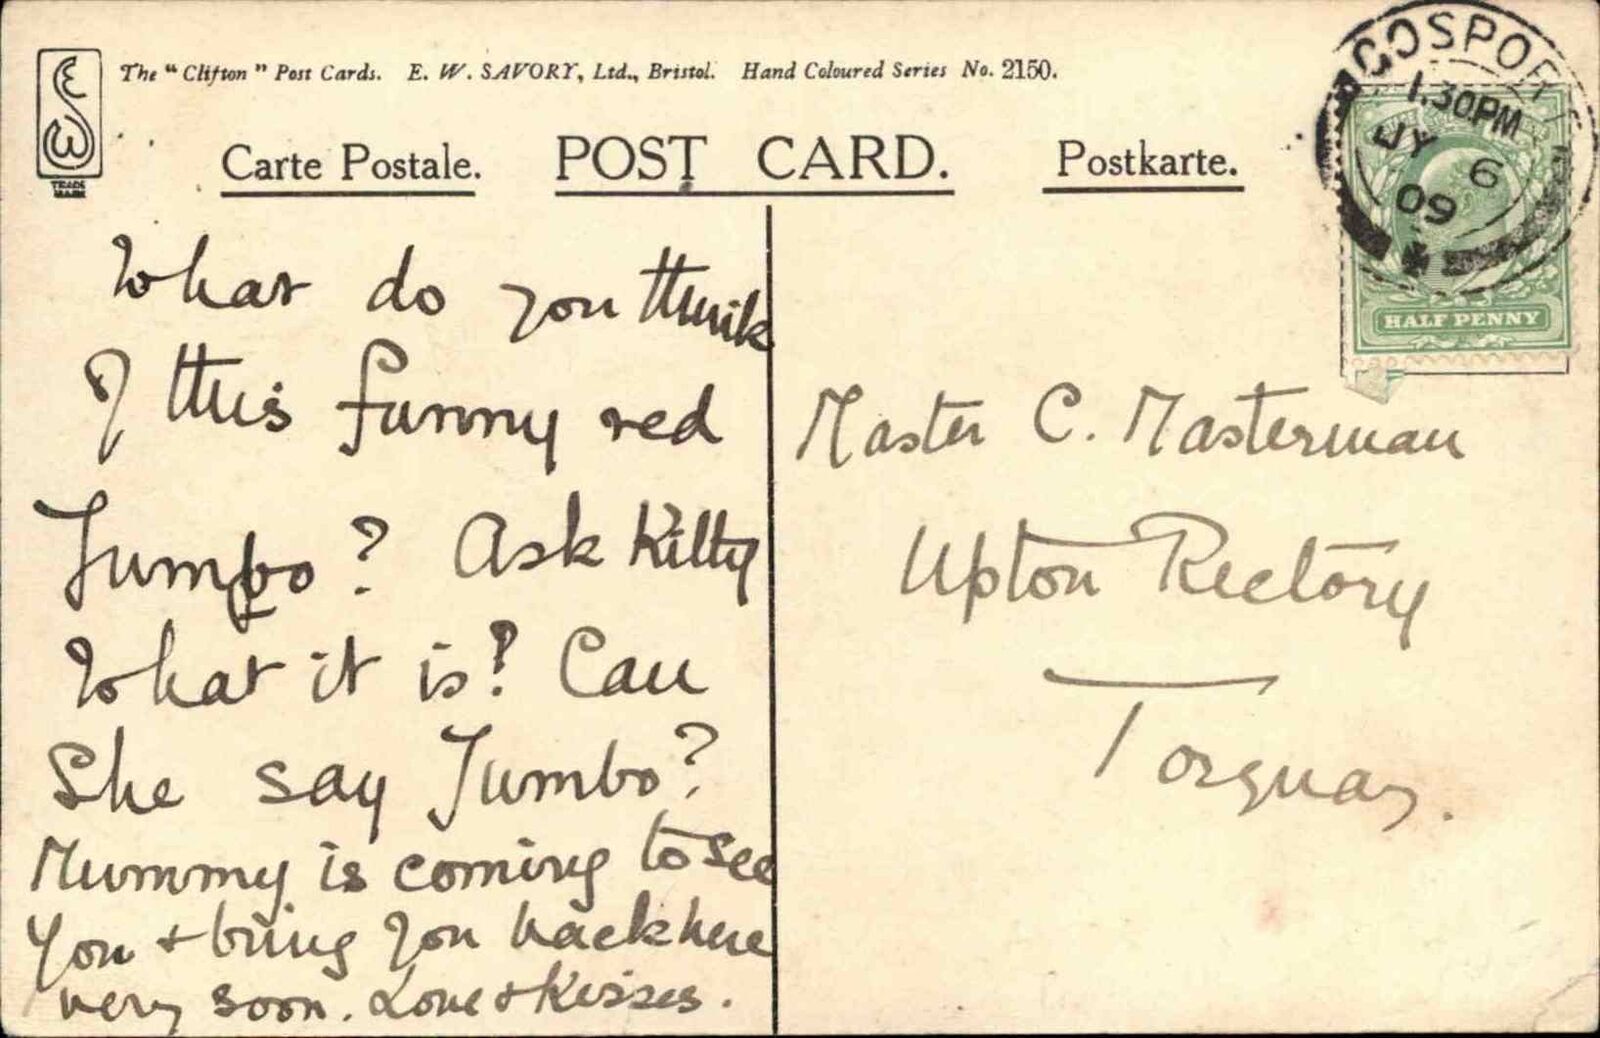 The "Clifton" Post Cards. E. W. SAVORY, Ltd., Bristol. Hand Coloured Series No. 2150.
TRADE
MARK
Carte Postale. POST CARD. Postkarte.
GOSPORT
1.30PM
JY 6
09
HALF PENNY
What do you think
of this funny red
Jumbo? Ask Kitty
What it is? Can
She say Jumbo?
Mummy is coming to see
you & bring you back here
very soon. Love & Kisses.
Master C. Masterman
Upton Rectory
Torquay.